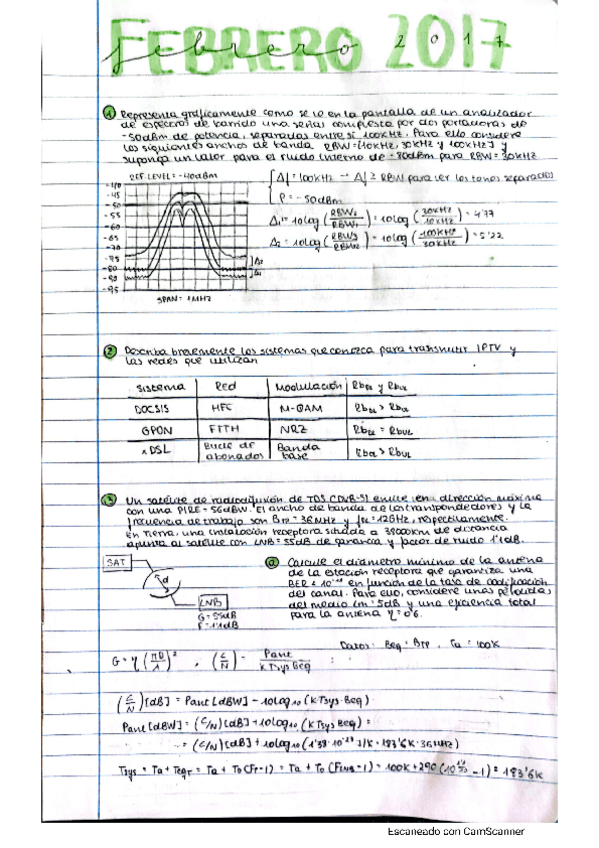 FEBRERO 2017
febrero 2017
1 Representa gráficamente como se ve en la pantalla de un analizador
de espectros de barrido una señal compuesta por dos portadoras de
-50dBm de potencia, separadas entre sí 100kHz. Para ello considere
los siguientes anchos de banda RBW=[10kHz, 30kHz y 100kHz] y
suponga un valor para el ruido interno de -80dBm para RBW = 30kHz
REF. LEVEL = -40dBm
Δf = 100kHz → Δf ≥ RBW para ver los tonos separados
P = -50dBm
-40
-45
-50
-55
-60
-65
-70
-75
-80
-85
-95
Δ2
Δ1
Δ1 = 10log (RBW2/RBW1) = 10log (30kHz/10kHz) = 4'77
Δ2 = 10log (RBW3/RBW2) = 10log (100kHz/30kHz) = 5'22
SPAN = 1MHz
2 Describa brevemente los sistemas que conozca para transmitir IPTV y
las redes que utilizan
Sistema Red Modulación RbDL y RbUL
DOCSIS HFC M-QAM RbDL > RbUL
GPON FTTH NRZ RbDL = RbUL
xDSL Bucle de abonados Banda base RbDL > RbUL
3 Un satélite de radiodifusión de TDS (DVB-S) emite en dirección máxima
con una PIRE = 56dBW. El ancho de banda de los transpondedores y la
frecuencia de trabajo son BTP = 36MHz y fDL = 12GHz, respectivamente.
En Tierra, una instalación receptora situada a 39000km de distancia
apunta al satélite con LNB = 55dB de ganancia y factor de ruido 1'1dB.
SAT
d
LNB
G = 55dB
F = 1'1dB
a Calcule el diámetro mínimo de la antena
de la estación receptora que garantiza una
en función de la tasa de codificación
del canal. Para ello, considere unas pérdidas
del medio Lm = 5dB y una eficiencia total
para la antena η = 0'6.
Datos: Beq = BTP, Ta = 100K
G = η (πD/λ)² , (C/N) = Pant/(k Tsys Beq)
(C/N)[dB] = Pant[dBW] - 10log10(k Tsys Beq)
Pant[dBW] = (C/N)[dB] + 10log10(k Tsys Beq) =
= (C/N)[dB] + 10log10(1'38·10⁻²³ J/K · 183'6K · 36MHz)
Tsys = Ta + Teqr = Ta + T0(Fr-1) = Ta + T0(FLNB-1) = 100K + 290(10^(1'1/10) -1) = 183'6K
Escaneado con CamScanner